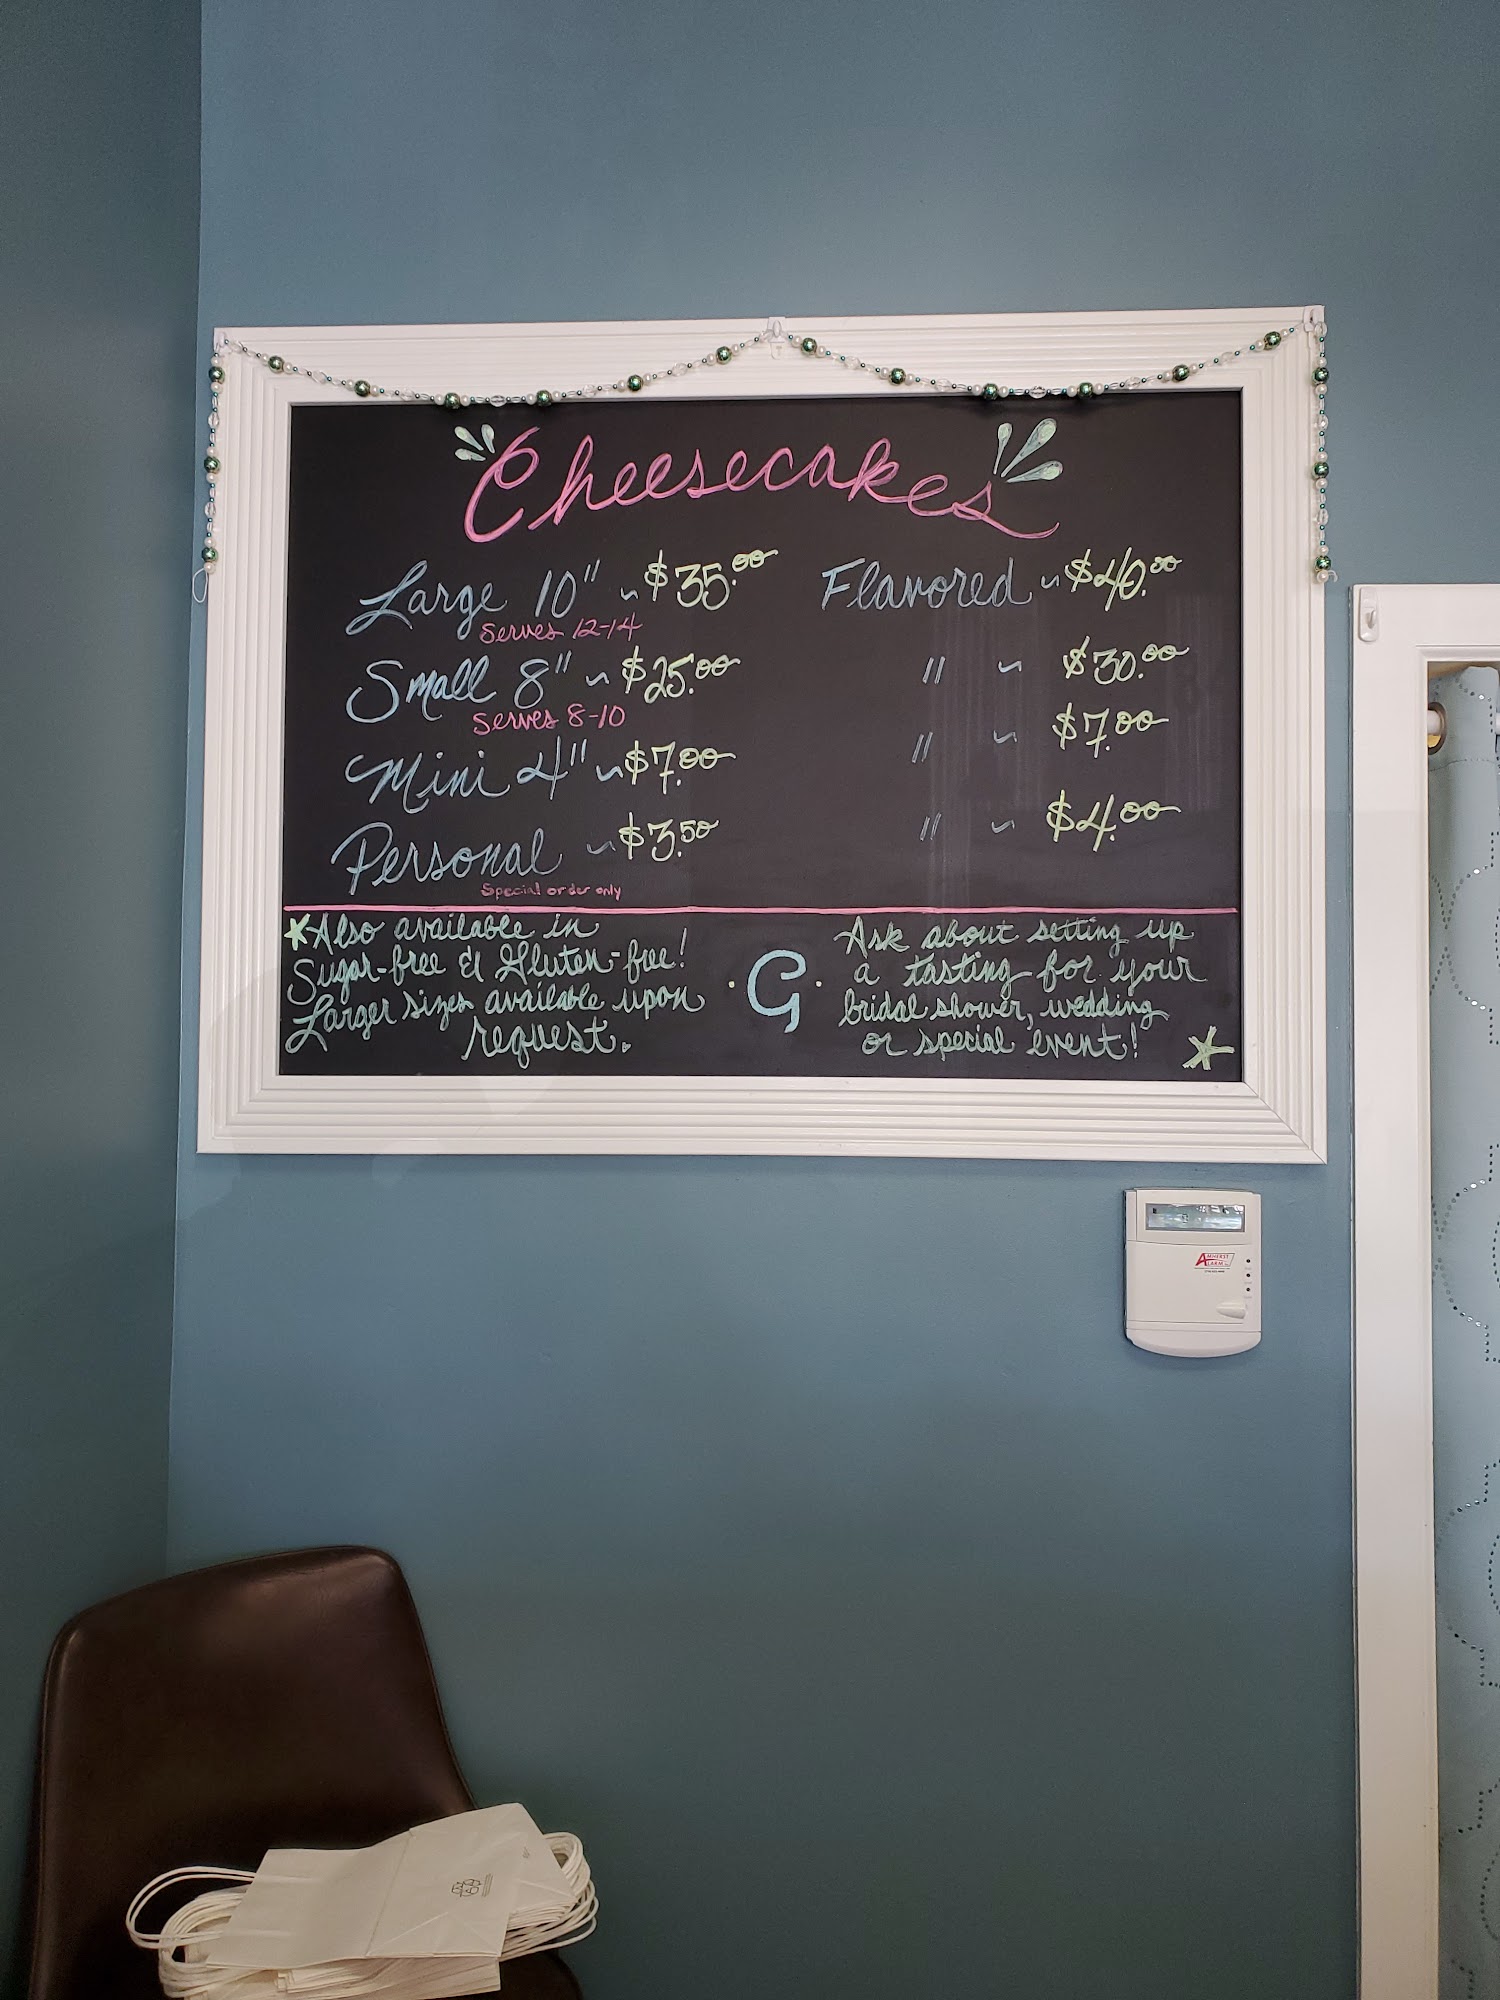 Cheesecakes
Large 10" ~ $35.00 Flavored ~ $40.00
Serves 12-14
Small 8" ~ $25.00 " ~ $30.00
Serves 8-10
Mini 4" ~ $7.00 " ~ $7.00
Personal ~ $3.50 " ~ $4.00
Special order only
*Also available in
Sugar-free & Gluten-free!
Larger sizes available upon
request.
· G ·
Ask about setting up
a tasting for your
bridal shower, wedding
or special event! *
AMHERST
ALARM